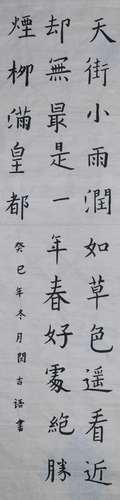 天街小雨潤如草色遙看近
却無最是一年春好處絶勝
煙柳滿皇都
癸巳年冬月閆吉語書